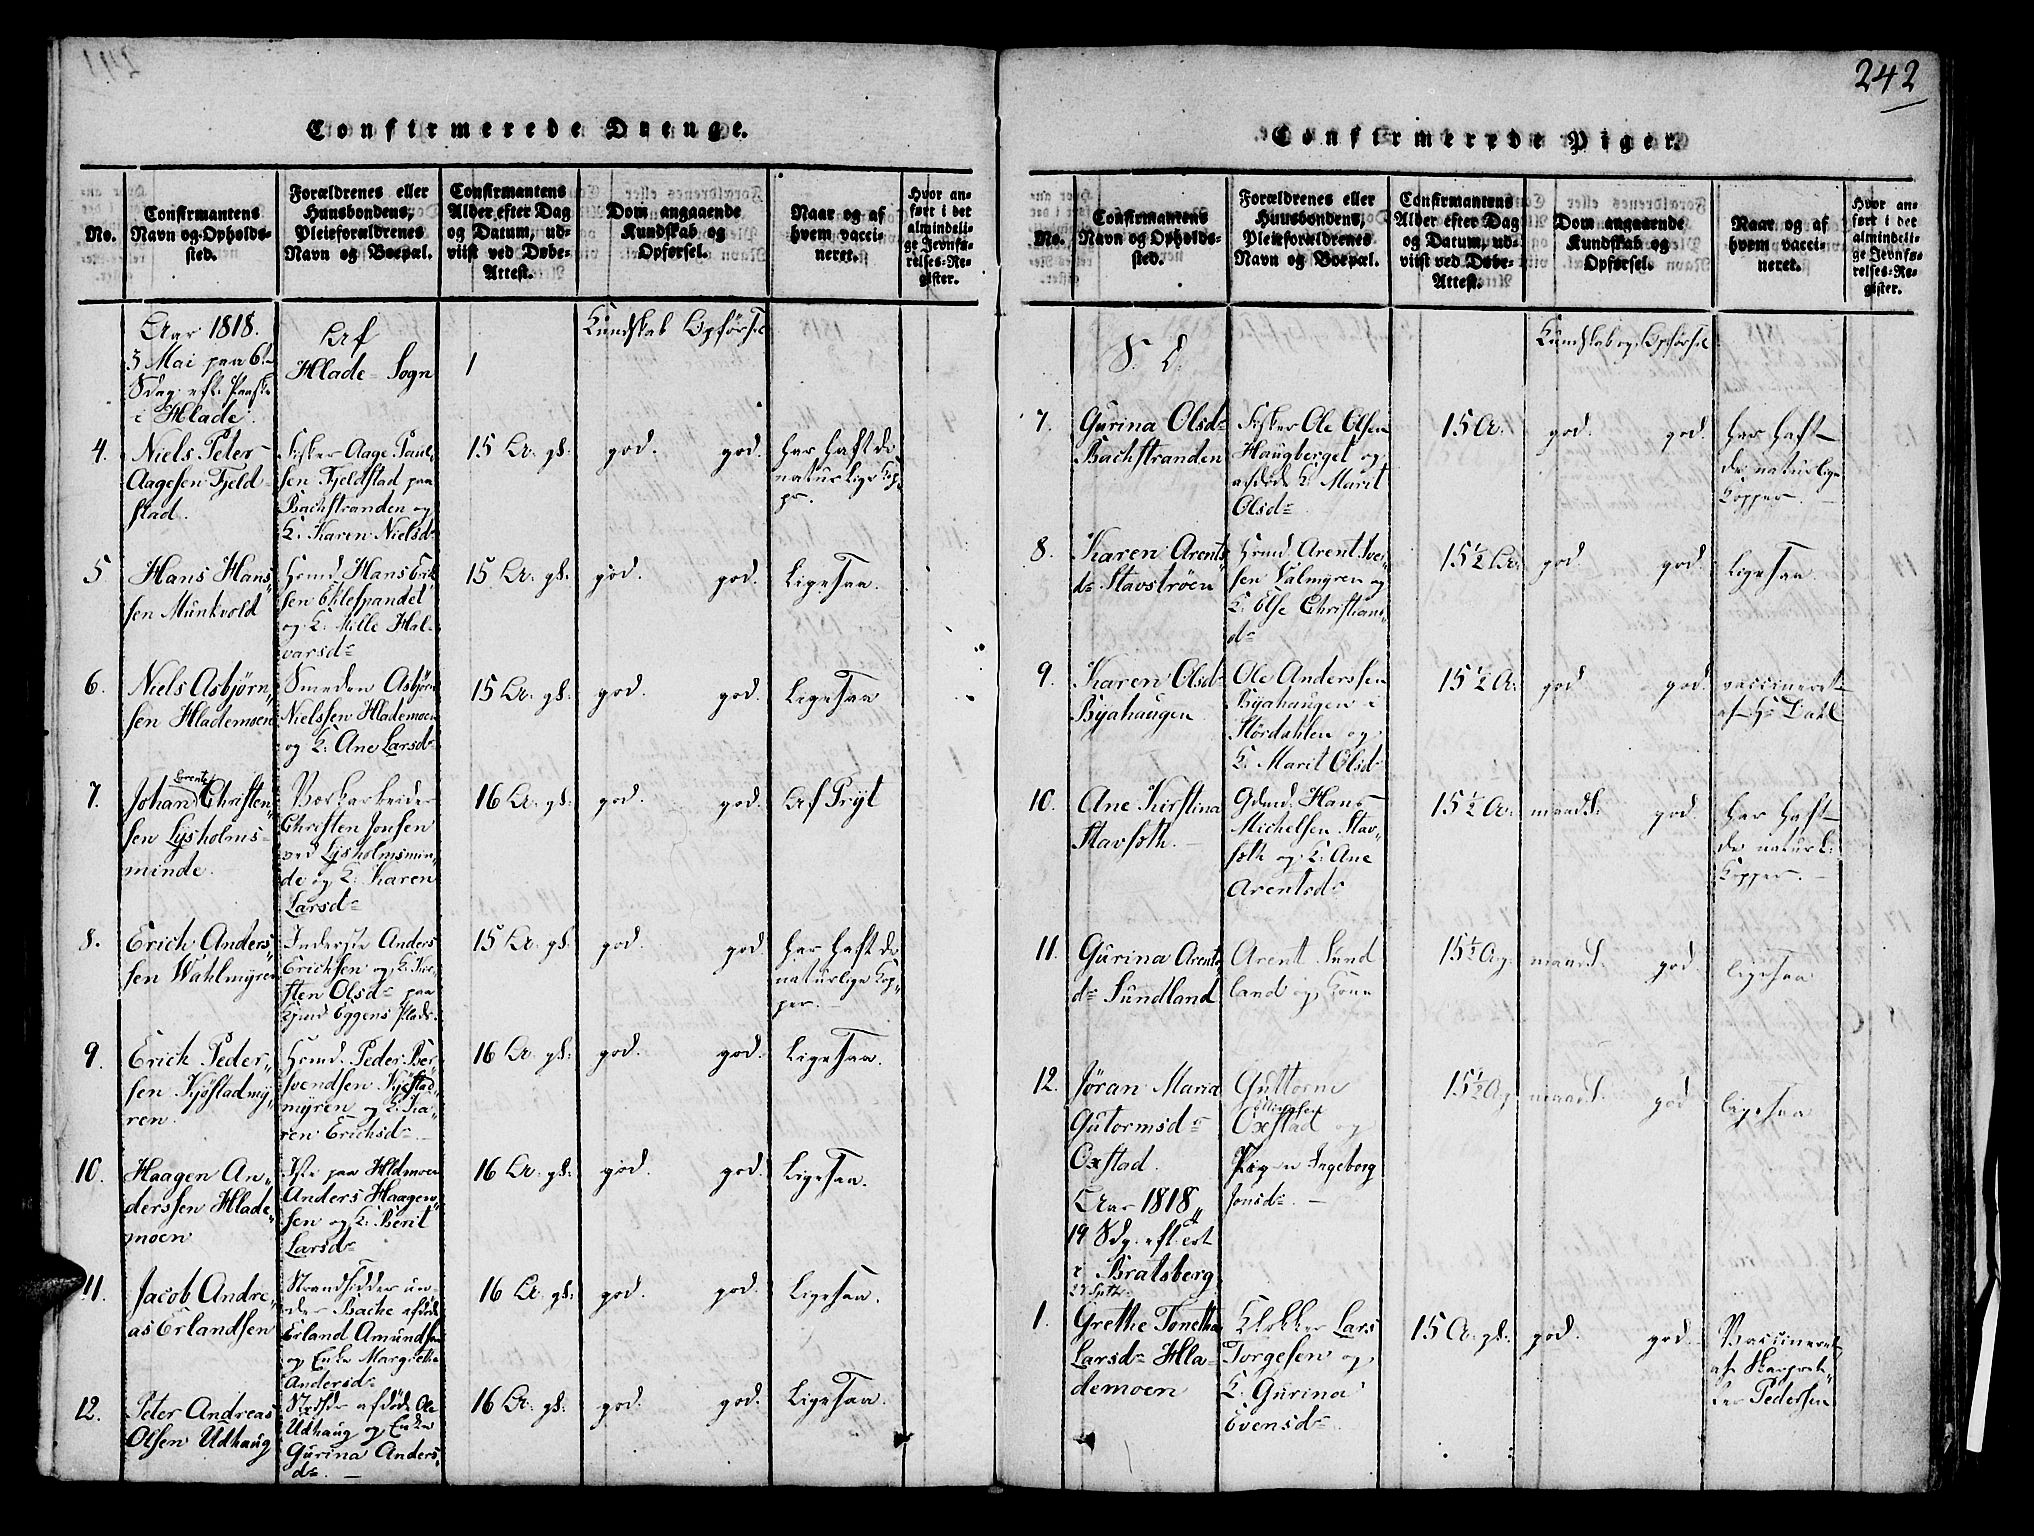 242
Confirmerede Drenge.
No.
Confirmantens
Navn og Opholds-
sted.
Forældrenes eller
Huusbondens,
Pleieforældrenes
Navn og Boepæl.
Confirmantens
Alder efter Dag
og Datum, ud-
viist ved Døbe-
Attest.
Dom angaaende
Kundskab og
Opførsel.
Naar og af
hvem vacci-
neret.
Hvor an-
ført i det
almindeli-
ge Jevnfø-
relses-Re-
gister.
Aar 1818.
3 Mai paa 6te
Sdag eft. Paaske
i Hlade.
Af
Hlade Sogn
Kundskab Opførsel
4.
Niels Peter
Aagesen Fjeld-
stad.
Fisker Aage Paul-
sen Fjeldstad paa
Bachstranden og
K. Karen Nielsdr
15 Ar. gl.
god. god.
har haft de
naturlige Kop-
pr.
5
Hans Hans-
sen Munkvold
Huusmd. Hans Erik-
sen
og K. Mille Hal-
varsdr
15 Ar. gl.
god. god.
Ligesaa.
6.
Niels Asbjørn-
sen Hlademoen
Smeden Asbjørn
Nielssen Hlademoen
og K. Ane Larsdr
15 Ar. gl.
god. god.
Ligesaa
7.
Johan Lorents Christen-
sen Lysholms-
minde.
Christen Jonsen
ved Lysholmsmin-
de og K. Karen
Larsdr
16 Ar. gl.
god. god.
Af Pryt
8.
Erich Anders-
sen Wahlmyren
Inderste Anders
Erichsen og K. Kir-
sten Olsdr paa
Eggens Plads.
15 Ar. gl.
god. god
har haft de
naturlige Kop-
per.
9.
Erich Peder-
sen Kjøstadmy-
ren.
Hsmd. Peder Ber-
svendsen Kjøstad-
myren og K. Ka-
ren Erichsdr
16 Ar. gl.
god. god.
Ligesaa.
10.
Haagen An-
derssen Hlade-
moen
Iste paa Hldmoen
Anders Haagen-
sen og K. Berit
Larsdr
16 Ar. gl.
god. god.
Ligesaa.
11.
Jacob Andre-
as Erlandsen
Strandsidder un-
der Bache afdøde
Erland Amundsen
og Enke Margrethe
Andersdr
16 Ar. gl.
god. god.
Ligesaa.
12.
Peter Andreas
Olsen Udhaug
afdøde Ole
Udhaug og Enke
Gurina Anders-
dr.
16 Ar. gl.
god. god.
Ligesaa.
Confirmerede Piger.
No.
Confirmantens
Navn og Opholds-
sted.
Forældrenes eller
Huusbondens,
Pleieforældrenes
Navn og Boepæl.
Confirmantens
Alder efter Dag
og Datum, ud-
viist ved Døbe-
Attest.
Dom angaaende
Kundskab og
Opførsel.
Naar og af
hvem vacci-
neret.
Hvor an-
ført i det
almindeli-
ge Jevnfø-
relses-Re-
gister.
S. D.
Kundskab og Opførsel
7.
Gurina Olsdr
Bachstranden
Fisker Ole Olsen
Haugberget og
afdøde K. Marit
Olsdr
15 A.
god. god.
har haft
de naturlige
Kopper.
8.
Karen Arents-
dr Stavstrøen
Hsmd. Arent Iver-
sen Valmyren og
K. Else Christians-
dr
15 1/2 Ar.
god god.
Ligesaa.
9.
Karen Olsdr
Byahaugen
Ole Anderssen
Byahaugen i
Størdahlen og
K. Marit Olsdr
15 1/2 A.
god god.
vaccineret
af Hr Dahl
10.
Ane Kirstina
Stavsøth.
Gdmd. Hans
Michelsen Stav-
søth og K. Ane
Arentsdr
15 1/2 A.
maadl. god.
har haft
de naturl.
Kopper.
11.
Gurina Arents-
dr Sundland
Arent Sund
land og Kone
15 1/2 Ar.
maadl. god.
ligesaa
12.
Jøran Maria
Gutormsdr
Oxstad.
Guttorm
Oxstad og
Pigen Ingeborg
Jonsdr.
15 1/2 Ar
maadl. god
ligesaa
Aar 1818
19 Sdg. eft. Trt
i Bratsberg
27 Sptbr.
1.
Grethe Tonetha
Larsdr Hla-
demoen
Klokker Lars
Torgesen og
K. Gurina
Evensdr
15 A. gl.
god. god.
Vaccineret
af Skarpret-
ter Pedersen